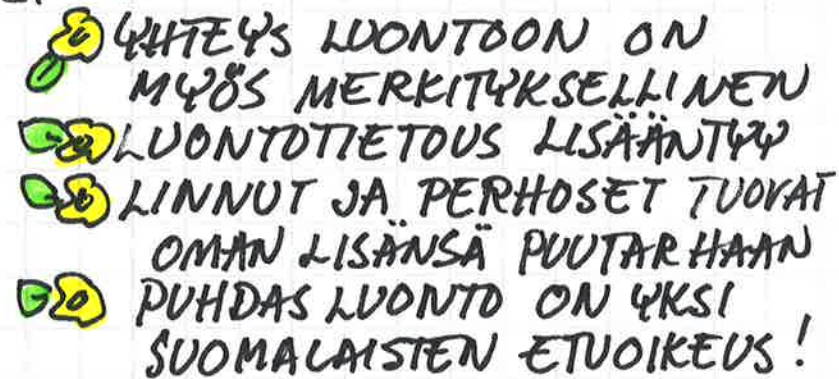 YHTEYS LUONTOON ON
MYÖS MERKITYKSELLINEN
LUONTOTIETOUS LISÄÄNTYY
LINNUT JA PERHOSET TUOVAT
OMAN LISÄNSÄ PUUTARHAAN
PUHDAS LUONTO ON YKSI
SUOMALAISTEN ETUOIKEUS!